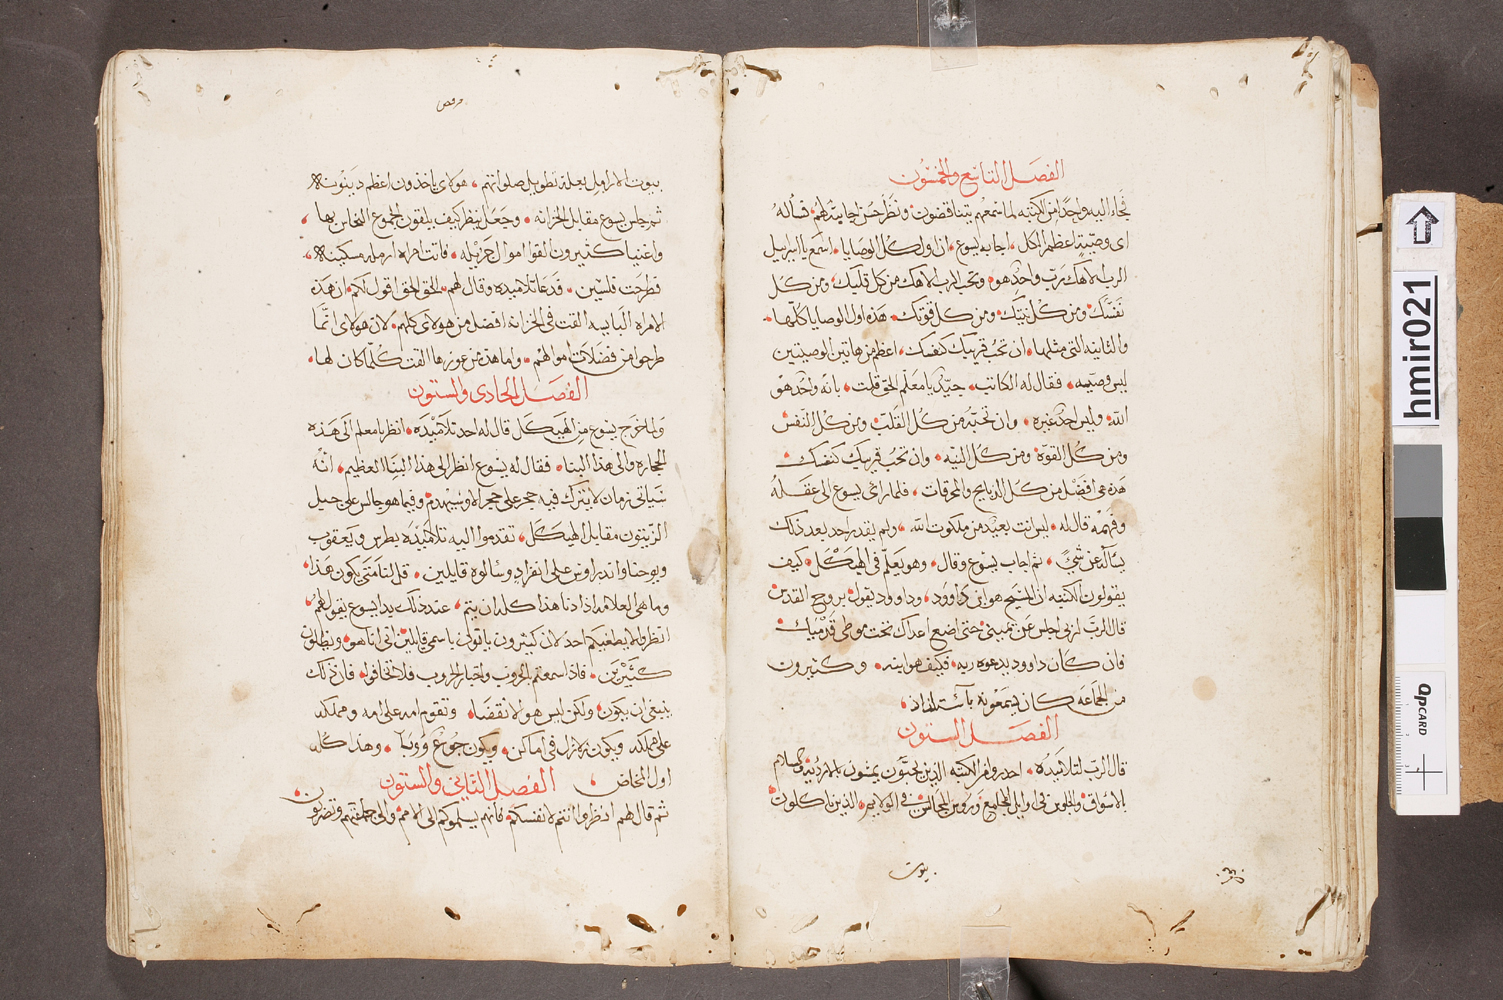 الفصل التاسع والخمسون
فجاء اليه واحدًا من الكتبه لما سمعهم يتناقضون ونظر حسن اجابته لهم فسأله
اى وصيّةٍ اعظم الكل اجابه يسوع ان اول كل الوصايا اسمع يا اسراييل
الرب الاهك رب واحدٌ هو وتحب الرب الاهك من كل قلبك ومن كل
نفسك ومن كل نيتك ومن كل قوتك هذه اول الوصايا كلها
والثانيه التى مثلها ان تحب قريبك كنفسك اعظم من هاتين الوصيتين
ليس وصيه فقال له الكاتب جيّد يا معلم الحق قلت بانه واحد هو
الله وليس احد غيره وان تحبّه من كل القلب ومن كل النفس
ومن كل القوة ومن كل النيّه وان تحب قريبك كنفسك
هذه هى افضل من كل الذبايح والمحرقات فلما راى يسوع الى عقله
وفهمه قال له لست بعيد من ملكوت الله ولم يقدر احد بعد ذلك
يسأله عن شىٍ ثم اجاب يسوع وقال وهو يعلّم فى الهيكل كيف
يقولون الكتبه ان المسيح هو ابن داوود وداوود يقول بروح القدس
قال الرب لربى اجلس عن يمينى حتى اضع اعداك تحت موطى قدميك
فان كان داوود يدعوه ربه فكيف هو ابنه وكثيرون
من الجماعه كان يسمعونه باستلذاذ
الفصل الستون
قال الرب لتلاميذه احدروا من الكتبه الذين يحبّون يمشون بالمرديه وكلام
بالاسواق والجلوس فى اوايل المجامع وروس المجالس فى الولايم الذين ياكلون
بيوت
مرقص
بيوت الارامل بعلة تطويل صلواتهم هولاى ياخذون اعظم دينونه
ثم جلس يسوع مقابل الخزانه وجعل ينظر كيف يلقون الجموع النحاس بها
واغنيا كثيرون القوا اموال جزيله فاتت امراه ارمله مسكينه
فطرحت فلسين فدعا تلاميذه وقال لهم الحق الحق اقول لكم ان هذه
الامراه البايسه القت فى الخزانه افضل من هولاى كلهم لان هولاى انما
طرحوا من فضلات اموالهم واما هذه من عوزها القت كلما كان لها
الفصل الحادى والستون
ولما خرج يسوع من الهيكل قال له احد تلاميذه انظر يا معلم الى هذه
الحجاره والى هذا البنا فقال له يسوع انظر الى هذا البنا العظيم انه
سياتى زمان لا يترك فيه حجر على حجر الا وسيهدم وفيما هو جالس على جبل
الزيتون مقابل الهيكل تقدموا اليه تلاميذه بطرس ويعقوب
ويوحنا واندراوس على انفراد وسالوه قايلين قل لنا متى يكون هذا
وما هى العلامه اذا دنا هذا كله ان يتم عند ذلك بدا يسوع يقول لهم
انظروا لا يطغيكم احد لان كثيرون ياتون باسمى قايلين انى انا هو ويطلون
كثيرين فاذا سمعتم بالحروب واخبار الحروب فلا تخافوا فان ذلك
ينبغى ان يكون ولكن ليس هو الانقضا وتقوم امه على امه ومملكه
على مملكه ويكون زلازل فى اماكن ويكون جوع ووبا وهذا كله
اول المخاض الفصل الثانى والستون
ثم قال لهم انظروا انتم لانفسكم فانهم يسلموكم الى الامم والى محافلهم وتضربون
hmir021
QPCARD